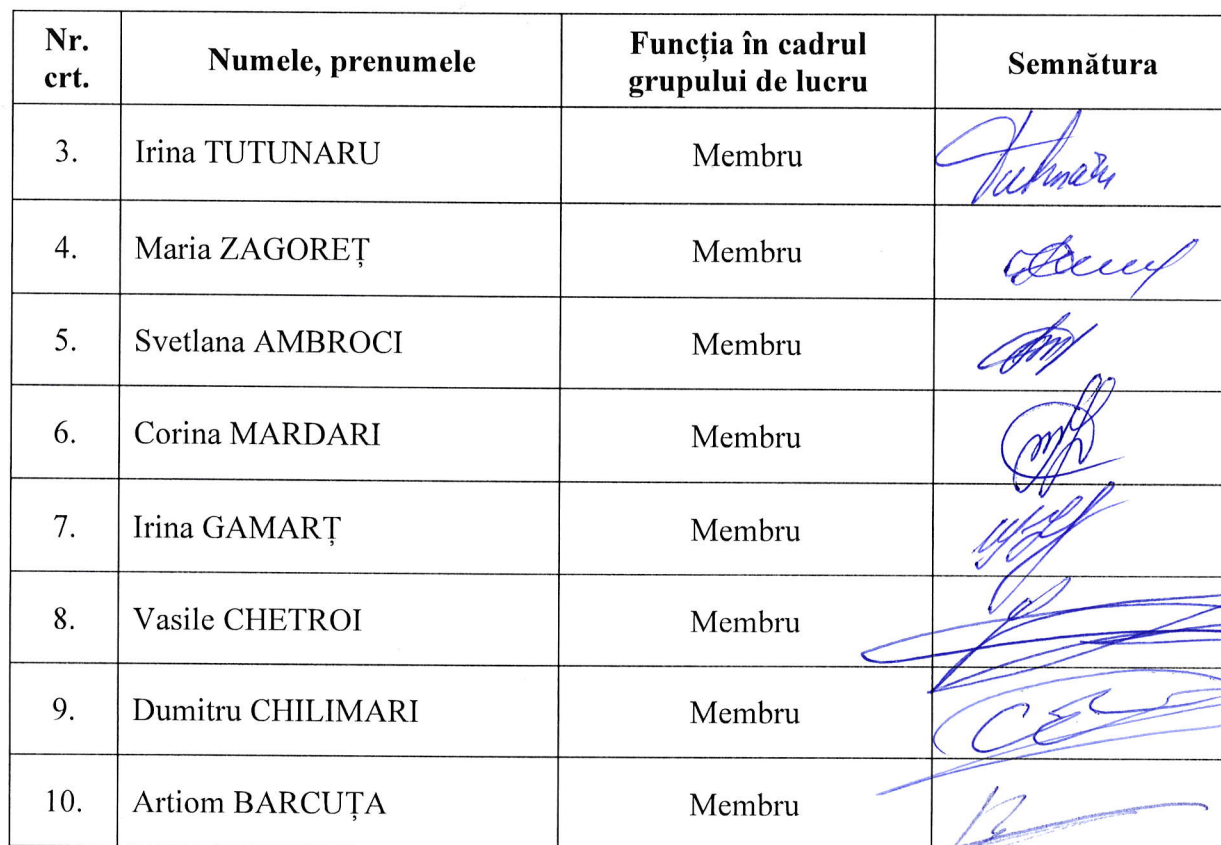 Nr. crt. Numele, prenumele Funcția în cadrul grupului de lucru Semnătura
3. Irina TUTUNARU Membru
4. Maria ZAGOREȚ Membru
5. Svetlana AMBROCI Membru
6. Corina MARDARI Membru
7. Irina GAMARȚ Membru
8. Vasile CHETROI Membru
9. Dumitru CHILIMARI Membru
10. Artiom BARCUȚA Membru